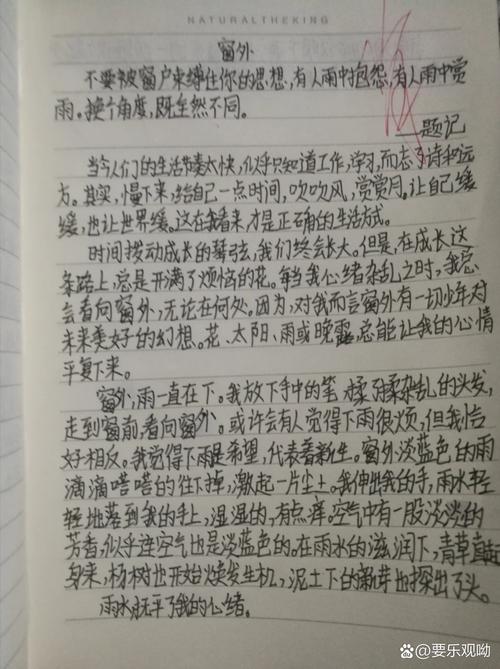 NATURALTHEKING
窗外
不要被窗户束缚住你的思想，有人雨中抱怨，有人雨中赏
雨。换个角度，既全然不同。
——题记
当今人们的生活节奏太快，似乎只知道工作，学习，而忘了诗和远
方。其实，慢下来，给自己一点时间，吹吹风，赏赏月。让自己缓
缓，也让世界缓。这在我看来才是正确的生活方式。
时间拨动成长的琴弦，我们终会长大。但是，在成长这
条路上，总是开满了烦恼的花。每当我心绪杂乱之时，我总
会看向窗外，无论在何处。因为，对我而言窗外有一切少年对
未来美好的幻想。花、太阳、雨或晚霞，总能让我的心情
平复下来。
窗外，雨一直在下。我放下手中的笔，揉了揉杂乱的头发，
走到窗前，看向窗外。或许会有人觉得下雨很烦，但我恰
好相反。我觉得下雨是希望，代表着新生。窗外淡蓝色的雨
滴滴嗒嗒的往下掉，激起一片尘土。我伸出我的手，雨水轻
轻地落到我的手上，湿湿的，有点痒。空气中有一股淡淡的
芳香，似乎连空气也是淡蓝色的。在雨水的滋润下，青草直起
身来，杨树也开始焕发生机，泥土下的嫩芽也探出了头。
雨水抚平了我的心绪。
百家号/要乐观呦